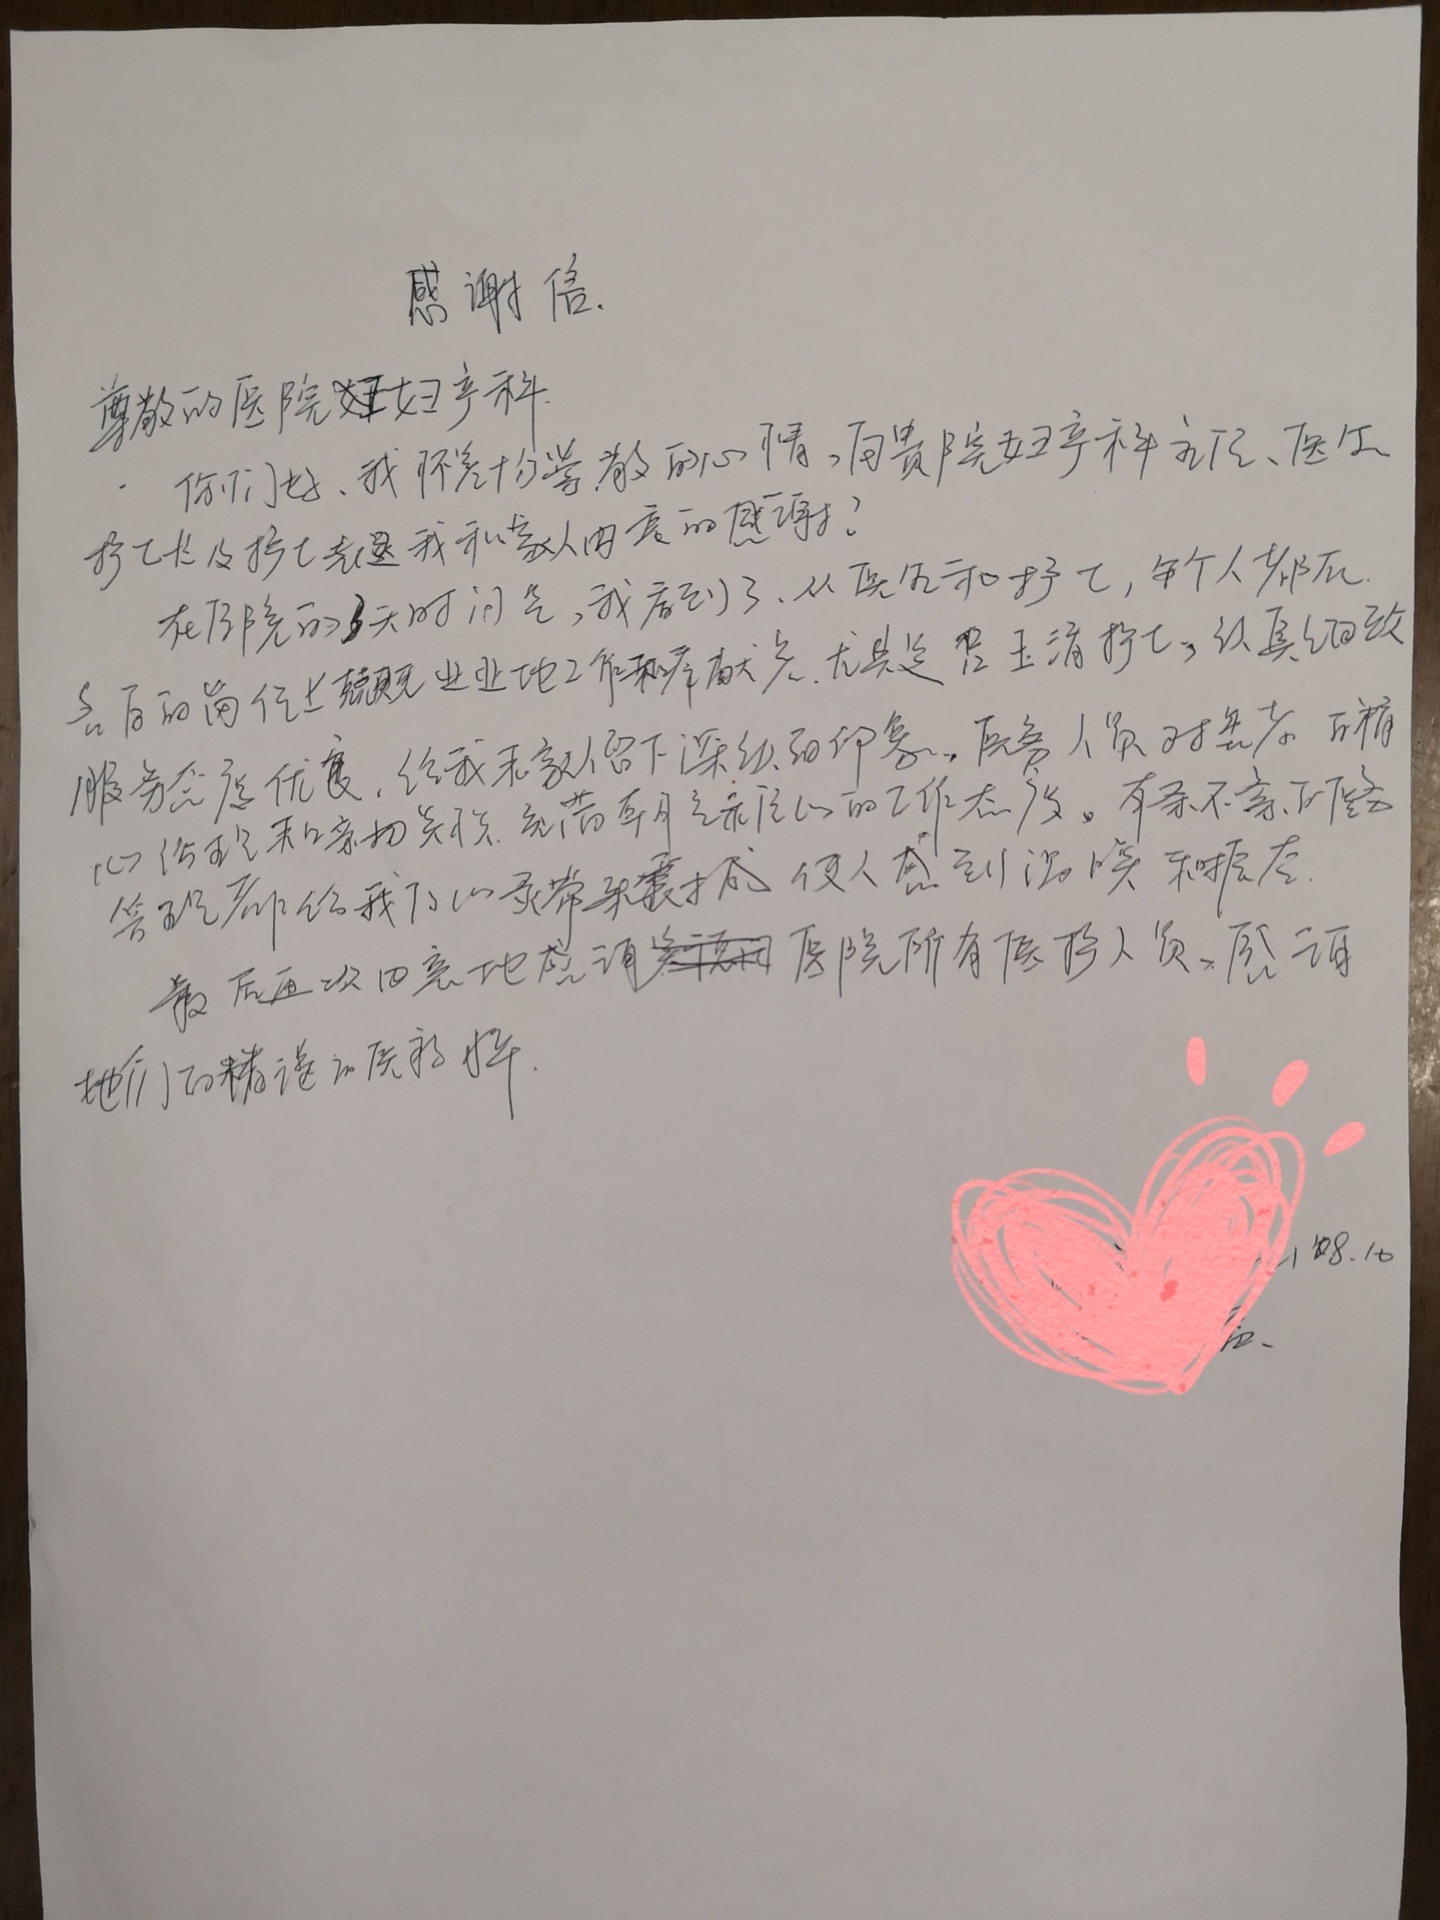 感谢信.
尊敬的医院妇产科.
你们好、我怀着十分尊敬的心情,向贵院妇产科主任、医生
护士长及护士表达我和家人由衷的感谢!
在住院的3天时间里,我看到了、从医生和护士,每个人都在
各自的岗位上兢兢业业地工作和奉献着.尤其是 玉清护士,认真细致
服务态度优良,给我和家人留下深刻的印象。医务人员对患者的精
心治理和亲切关怀.充满朝气 责任心的工作态度。有条不紊的
管理都给我的心灵带来 使人感到温暖和振奋.
最后再次由衷地感谢 医院所有医护人员,感谢
他们的精湛的医 .
8.10